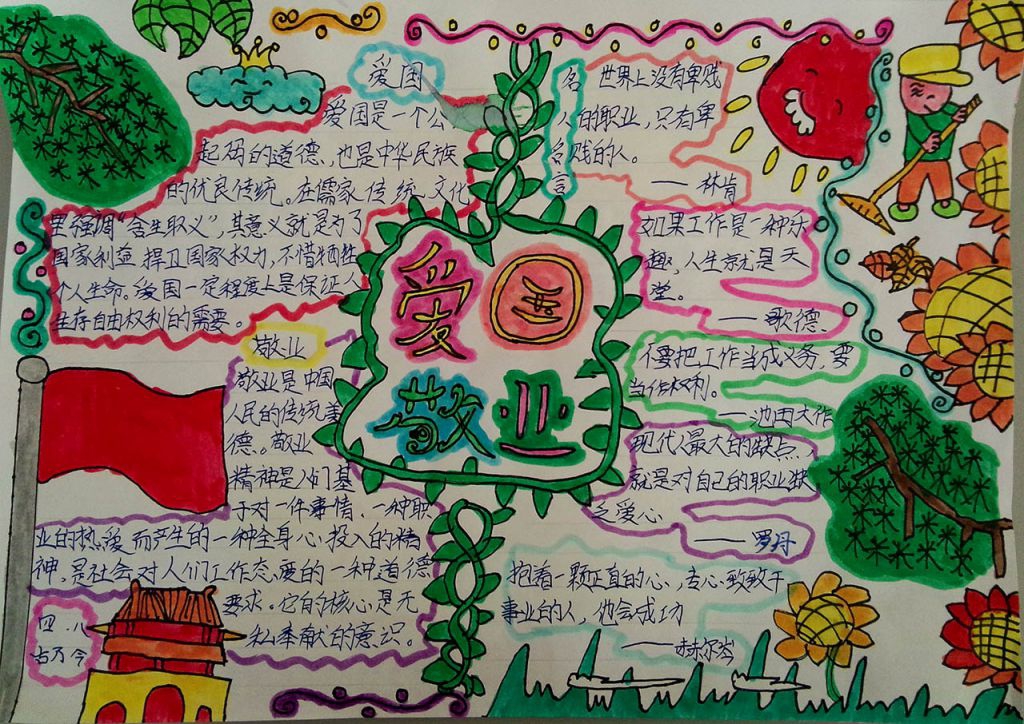 爱国
爱国是一个公
起码的道德、也是中华民族
的优良传统。在儒家传统文化
里强调“舍生取义”,其意义就是为了
国家利益捍卫国家权力,不惜牺牲
个人生命。爱国一定程度上是保证人
生存自由权利的需要。
敬业
敬业是中国
人民的传统美
德。敬业
精神是人们基
于对一件事情、一种职
业的热爱而产生的一种全身心投入的精
神,是社会对人们工作态度的一种道德
要求。它的核心是无
私奉献的意识。
四.八
古乃今
爱国
敬业
名
名
言
世界上没有卑贱
人的职业,只有卑
贱的人。
——林肯
如果工作是一种乐
趣,人生就是天
堂。
——歌德
不要把工作当成义务,要
当作权利。
——池田大作
现代人最大的缺点,
就是对自己的职业缺
乏爱心
——罗丹
抱着一颗正直的心,专心致致于
事业的人,他会成功
——赫尔岑